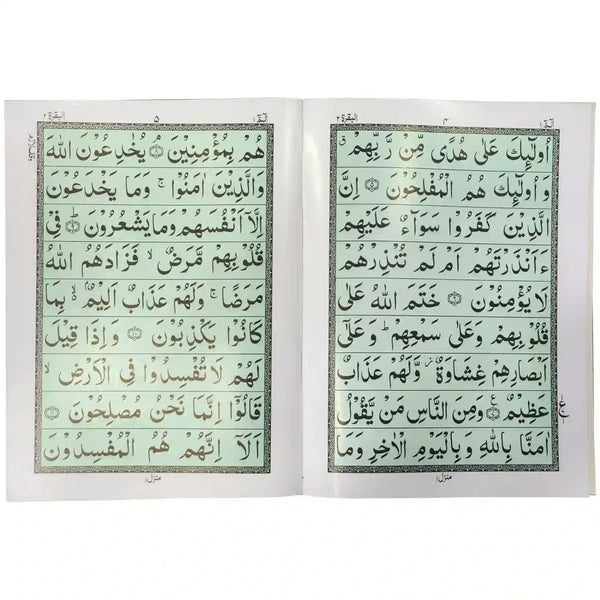 الٓمّٓ ١ ۴ البقرة ٢
اُولٰٓئِكَ عَلٰى هُدًى مِّنْ رَّبِّهِمْ ۗ
وَ اُولٰٓئِكَ هُمُ الْمُفْلِحُوْنَ ۝٥ اِنَّ
الَّذِيْنَ كَفَرُوْا سَوَآءٌ عَلَيْهِمْ
ءَاَنْذَرْتَهُمْ اَمْ لَمْ تُنْذِرْهُمْ
لَا يُؤْمِنُوْنَ ۝٦ خَتَمَ اللّٰهُ عَلٰى
قُلُوْبِهِمْ وَعَلٰى سَمْعِهِمْ ؕ وَعَلٰٓى
اَبْصَارِهِمْ غِشَاوَةٌ ؗ وَّلَهُمْ عَذَابٌ
عَظِيْمٌ ۝٧ وَمِنَ النَّاسِ مَنْ يَّقُوْلُ
اٰمَنَّا بِاللّٰهِ وَ بِالْيَوْمِ الْاٰخِرِ وَمَا
منزل ١
الٓمّٓ ١ ۵ البقرة ٢
هُمْ بِمُؤْمِنِيْنَ ۝٨ يُخٰدِعُوْنَ اللّٰهَ
وَالَّذِيْنَ اٰمَنُوْا ۚ وَمَا يَخْدَعُوْنَ
اِلَّاۤ اَنْفُسَهُمْ وَمَا يَشْعُرُوْنَ ؕ ۝٩ فِيْ
قُلُوْبِهِمْ مَّرَضٌ ۙ فَزَادَهُمُ اللّٰهُ
مَرَضًا ۚ وَلَهُمْ عَذَابٌ اَلِيْمٌۢ ۙ بِمَا
كَانُوْا يَكْذِبُوْنَ ۝١٠ وَاِذَا قِيْلَ
لَهُمْ لَا تُفْسِدُوْا فِي الْاَرْضِ ۙ
قَالُوْٓا اِنَّمَا نَحْنُ مُصْلِحُوْنَ ۝١١
اَلَاۤ اِنَّهُمْ هُمُ الْمُفْسِدُوْنَ
منزل ١